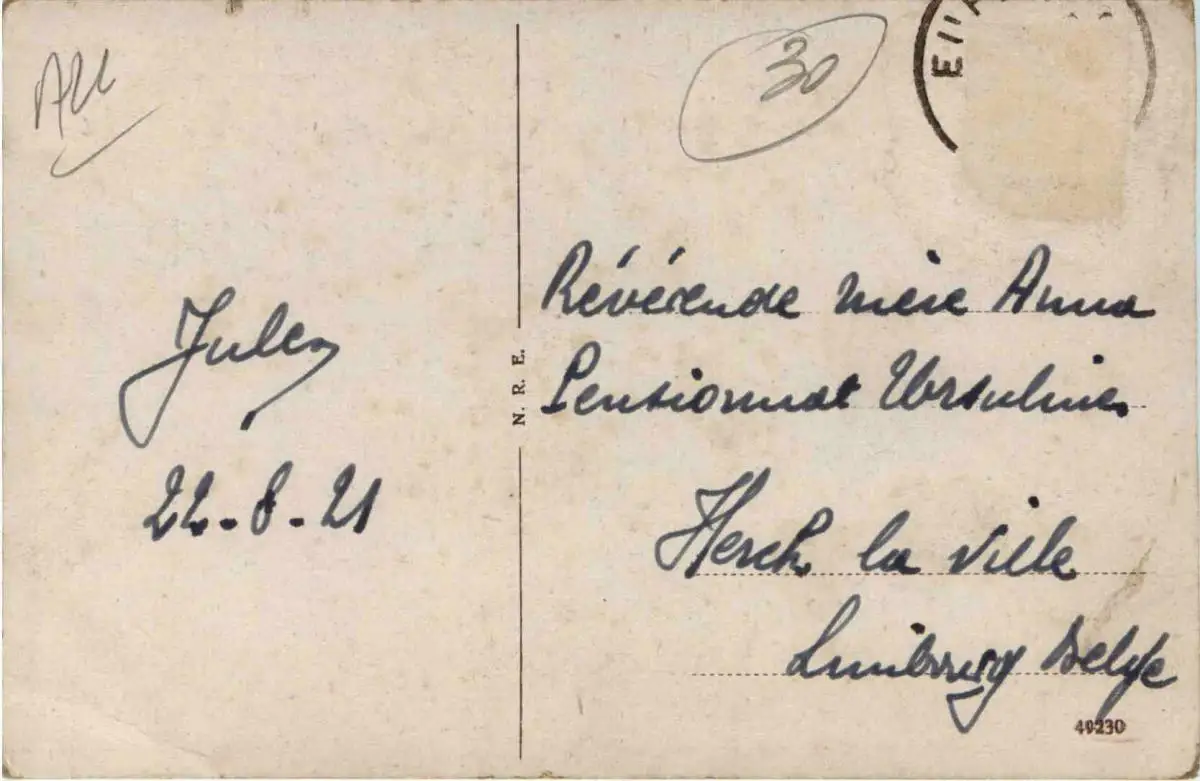 All
30
Jules
22-8-21
N. R. E.
Révérende mère Anna
Pensionnat Ursulines
Herck la Ville
Limbourg Belge
49230